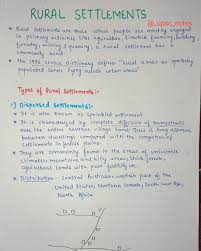 RURAL SETTLEMENTS
@_upsc_notes
Rural settlements are those where people are mostly engaged
in primary activities like agriculture,
forestry, mining & fishing, a rural settlement has a
community bond
The 1995 census dictionary defines "Rural areas as sparsely
populated lands lying outside urban areas"
Types of Rural Settlements:-
1) Dispersed Settlements:-
It is also known as sprinkled settlement
It is characterised by complete diffusion of homesteads
over the entire village lands. There is long distance
between dwellings compared with the compaction
of settlements in fertile plains
They are commonly found in the areas of unsuitable
climates, mountains and hilly areas, thick forests,
agricultural lands with poor fertility etc.
Distribution - Central Australia, western part of the
United States, Northern Canada, South-west Asia,
North Africa